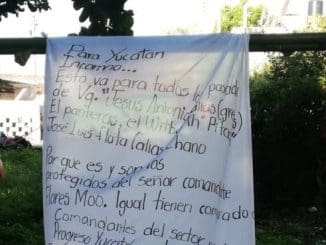 Para Yucatan
Informo...
Esta va para todos la panda
de Vg. "Jesus Antonio alias (gre)
El panteras, el Witti, "Pita"
José Luis flota (alias Chano
Por que es y son los
protegidos del señor comandante
flores Moo. Igual tienen comprado a
Comandantes del sector
Progreso Yucatán